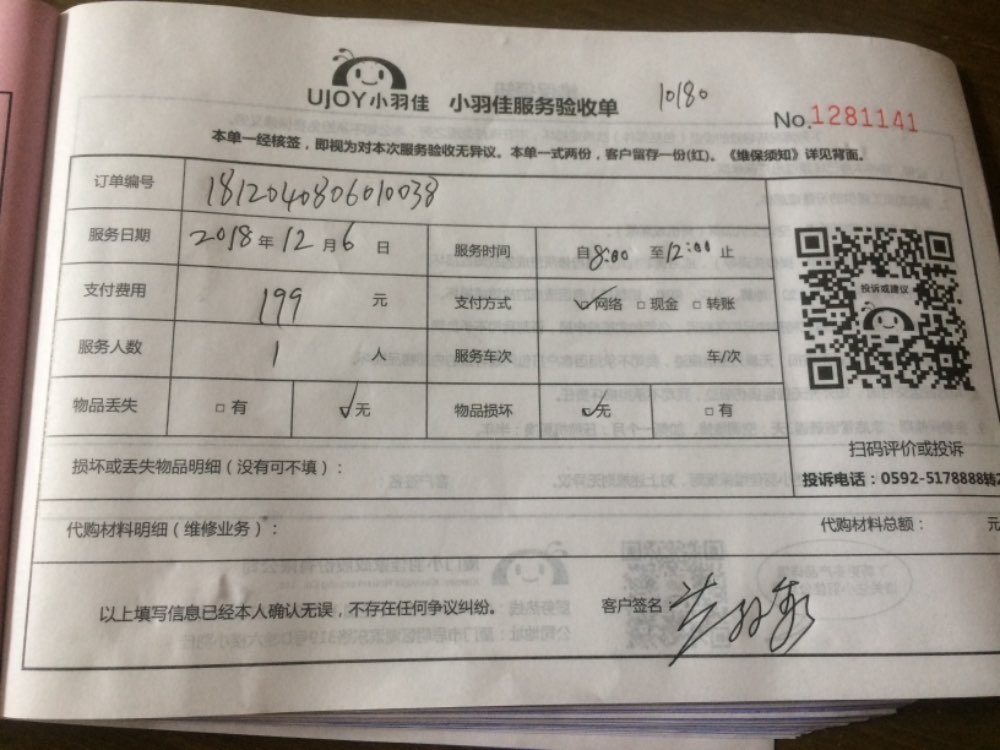 UJOY小羽佳 小羽佳服务验收单 10180 No.1281141
本单一经核签，即视为对本次服务验收无异议。本单一式两份，客户留存一份(红)。《维保须知》详见背面。
订单编号 1812040806010038
服务日期 2018年12月6日 服务时间 自8:00至12:00止
支付费用 199 元 支付方式 ☑网络 □现金 □转账
服务人数 1 人 服务车次 车/次
物品丢失 □有 ☑无 物品损坏 ☑无 □有
投诉或建议
扫码评价或投诉
损坏或丢失物品明细（没有可不填）：
投诉电话：0592-5178888转2
代购材料明细（维修业务）： 代购材料总额： 元
以上填写信息已经本人确认无误，不存在任何争议纠纷。 客户签名：